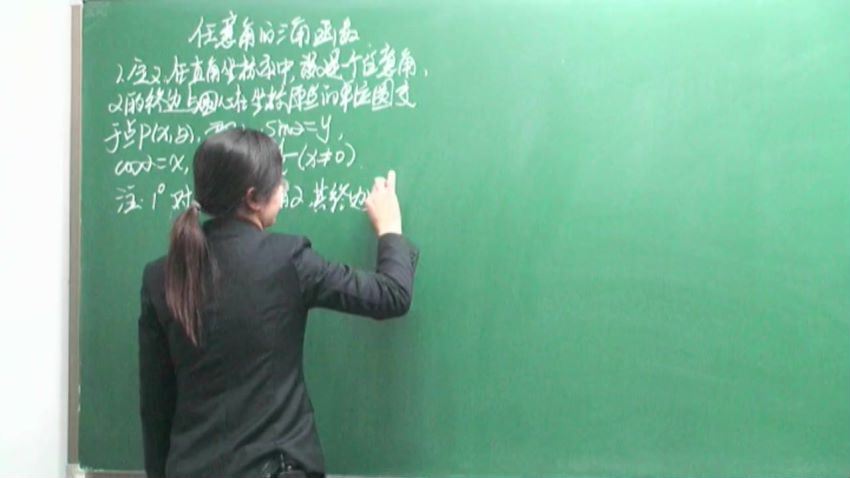 任意角的三角函数
1.定义:在直角坐标系中,设α是一个任意角,
α的终边与圆心在坐标原点的单位圆交
于点P(x,y), sinα=y,
cosα=x, (x≠0)
注:1°对 角α,其终边